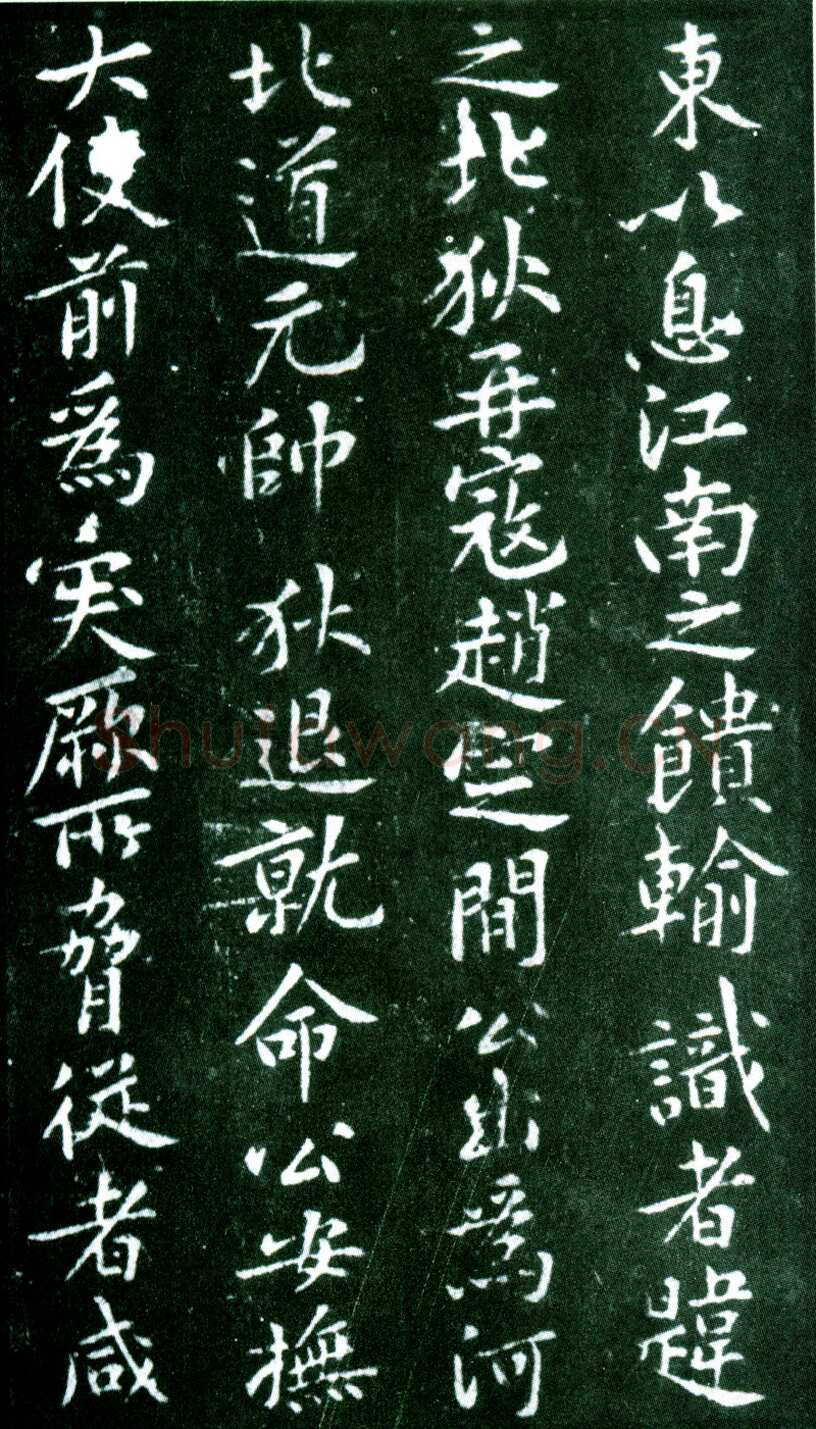 東以息江南之饋輸識者韙
之北狄再寇趙定間公出爲河
北道元帥狄退就命公安撫
大使前爲突厥所脅從者咸
Shufawang.CN